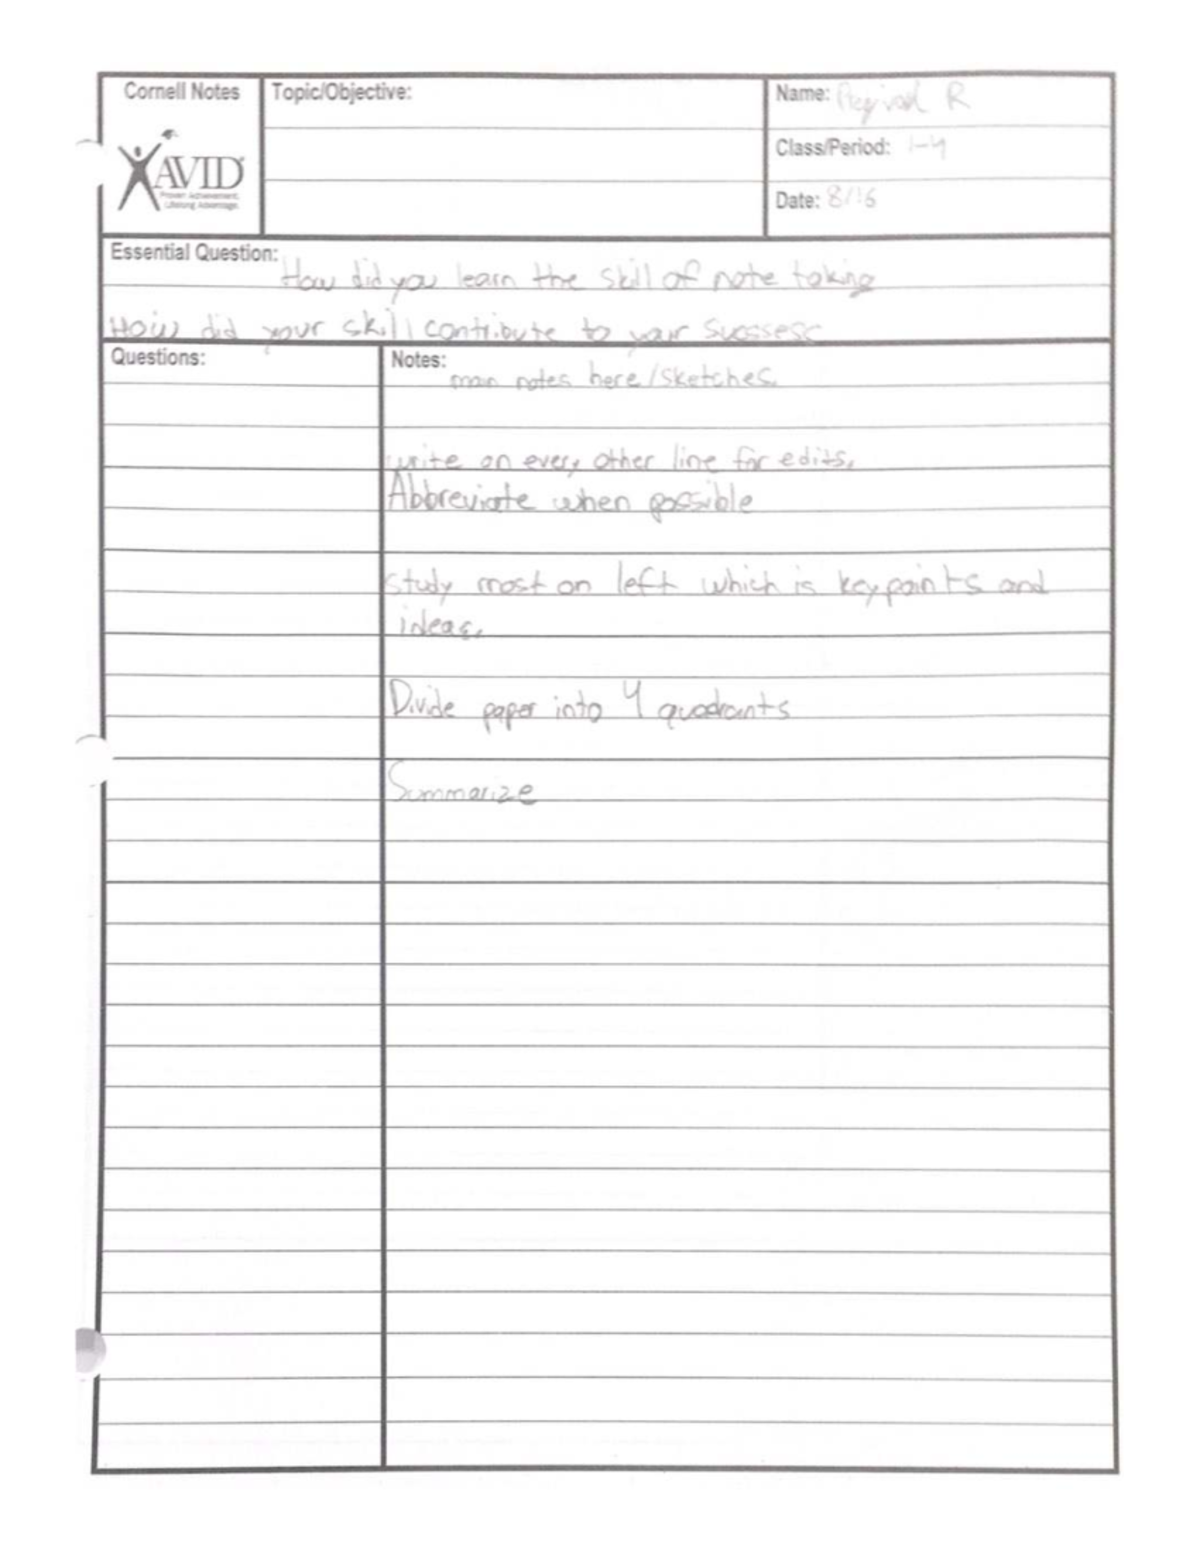 Cornell Notes
Topic/Objective:
Name: R
Class/Period: 1-4
Date: 8/16
AVID
Proven Achievement.
Lifelong Advantage.
Essential Question: How did you learn the skill of note taking
How did your skill contribute to your Sucssess
Questions:
Notes: main notes here/sketches.
write on every other line for edits.
Abbreviate when possible
study most on left which is key points and
ideas.
Divide paper into 4 quadrants
Summarize